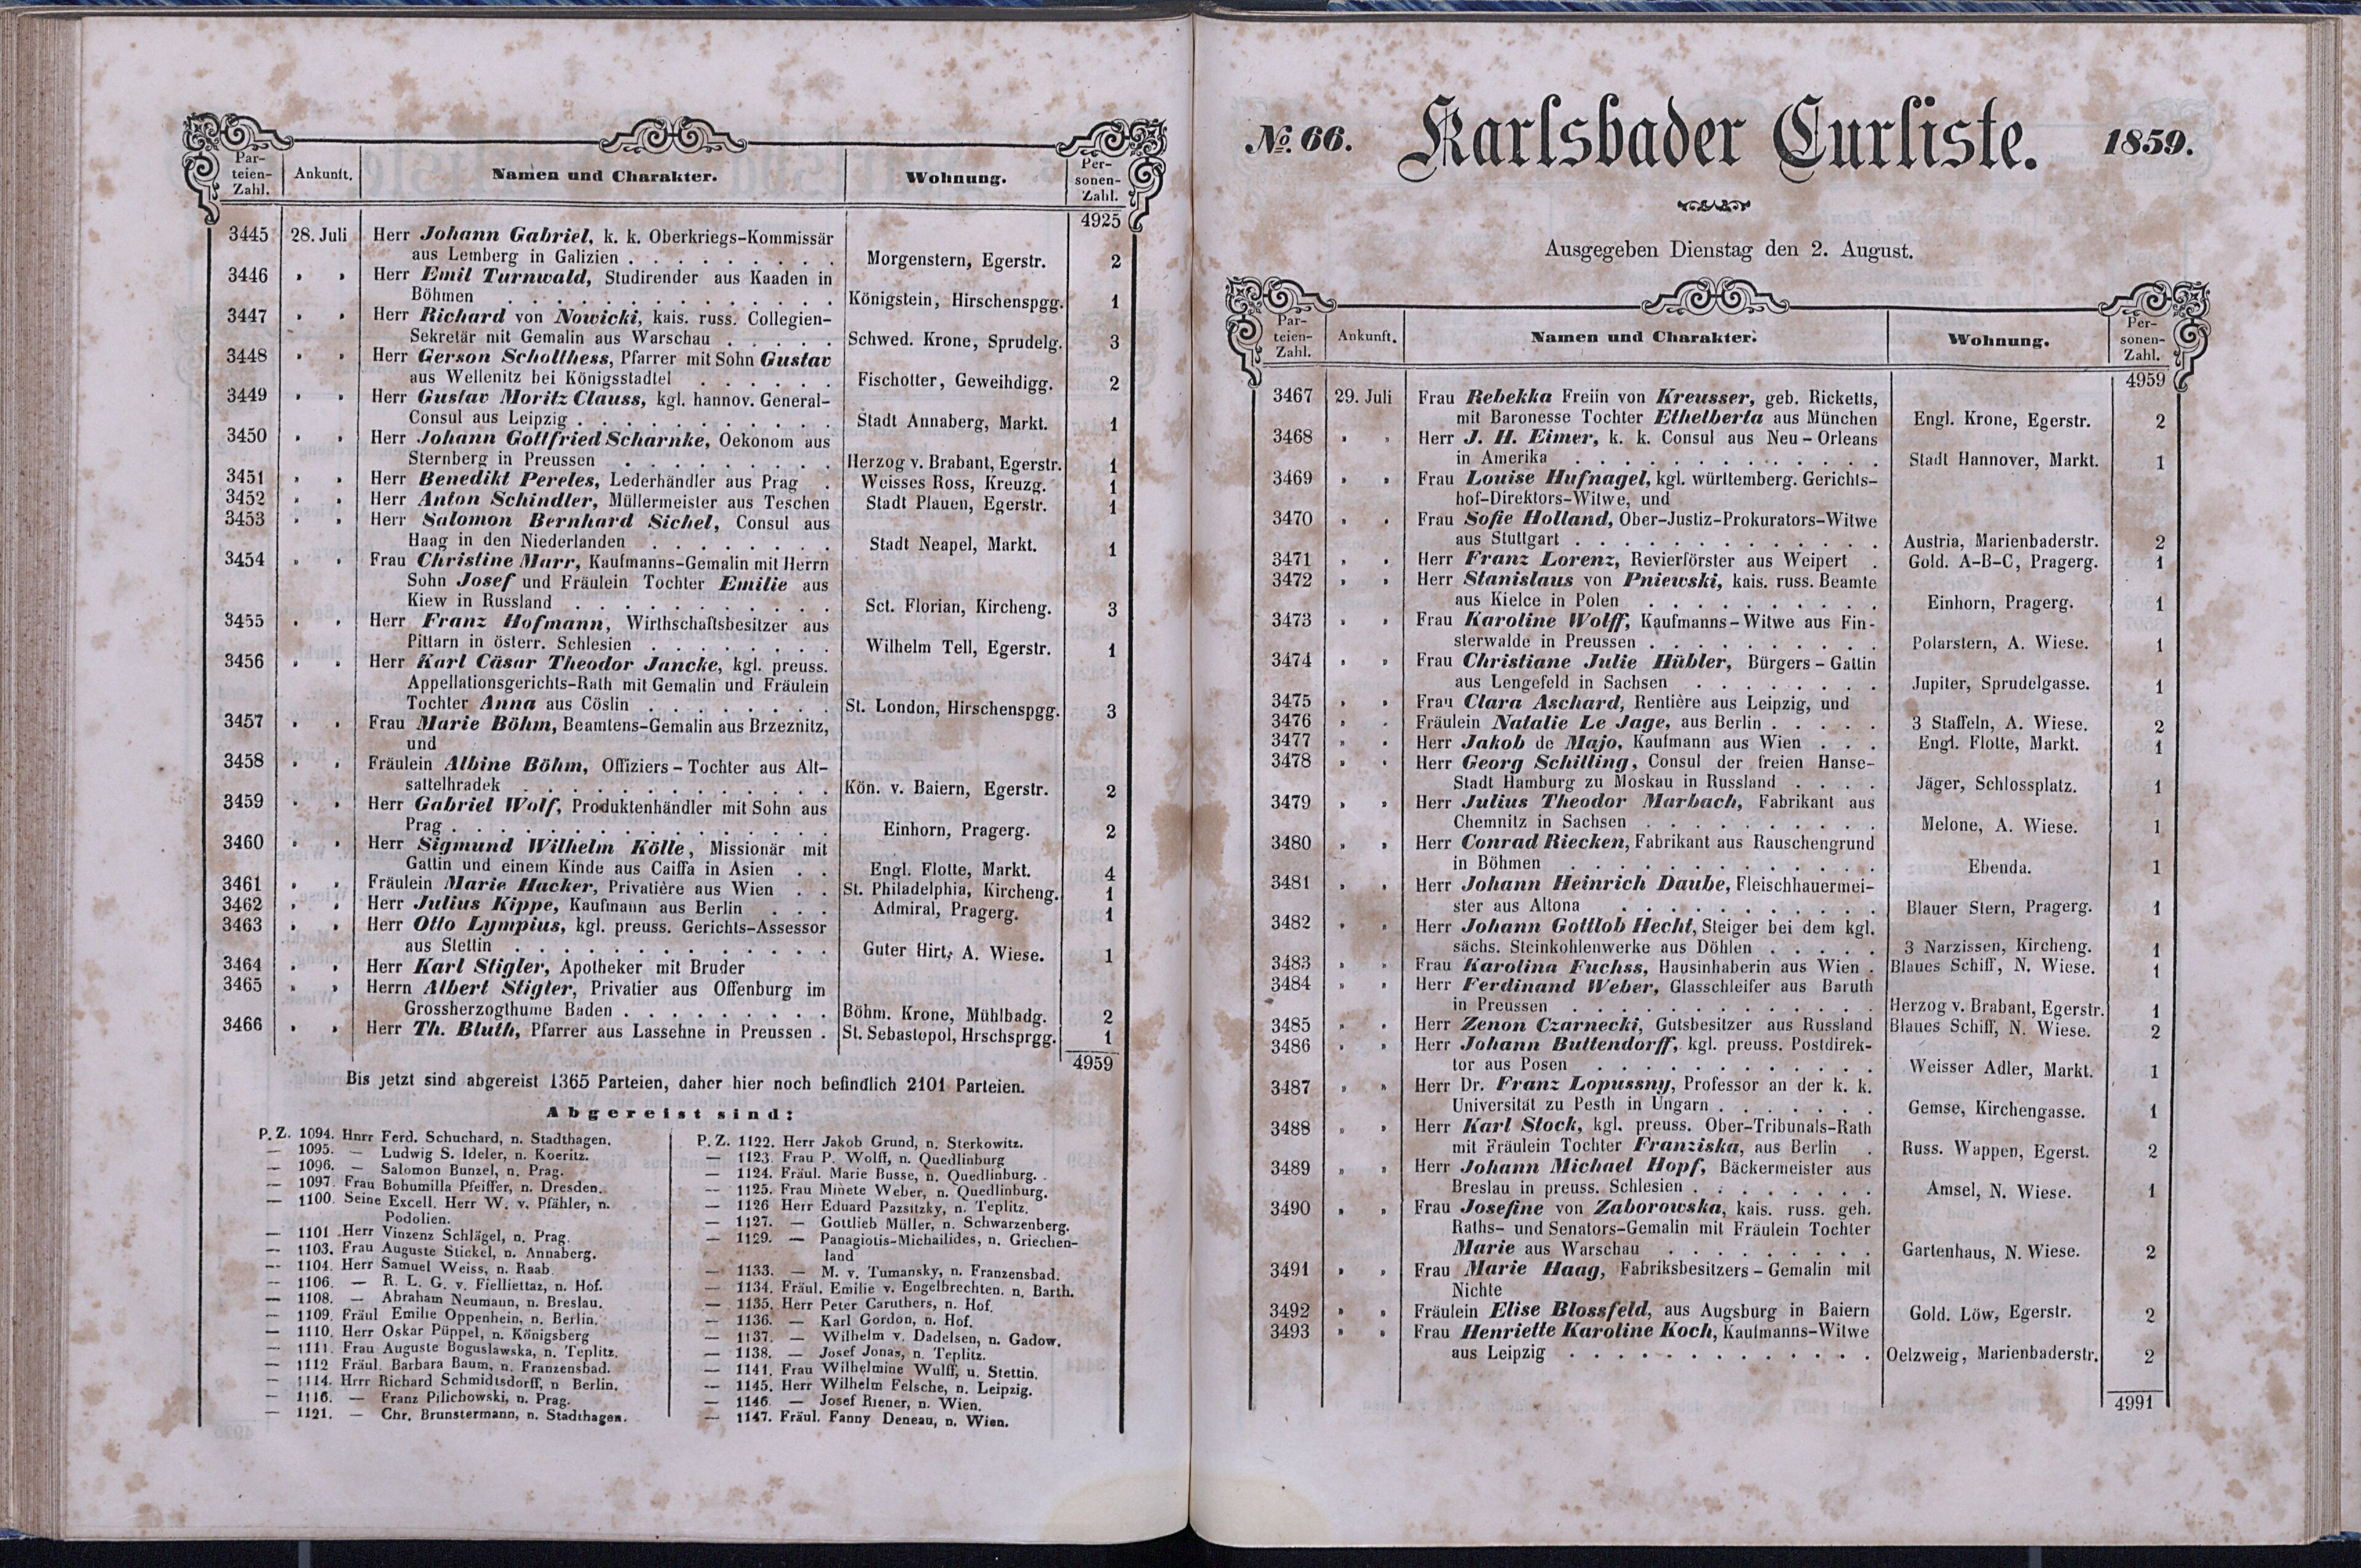 Par-
teien-
Zahl.
Ankunft.
Namen und Charakter.
Wohnung.
Per-
sonen-
Zahl.
4925
3445 28. Juli Herr Johann Gabriel, k. k. Oberkriegs-Kommissär
aus Lemberg in Galizien . . . . . . . . . Morgenstern, Egerstr. 2
3446 „ „ Herr Emil Turnwald, Studirender aus Kaaden in
Böhmen . . . . . . . . . . . . Königstein, Hirschenspgg. 1
3447 „ „ Herr Richard von Nowicki, kais. russ. Collegien-
Sekretär mit Gemalin aus Warschau . . . . . Schwed. Krone, Sprudelg. 3
3448 „ „ Herr Gerson Scholthess, Pfarrer mit Sohn Gustav
aus Wellenitz bei Königsstadtel . . . . . . Fischotter, Geweihdigg. 2
3449 „ „ Herr Gustav Moritz Clauss, kgl. hannov. General-
Consul aus Leipzig . . . . . . . . . . . Stadt Annaberg, Markt. 1
3450 „ „ Herr Johann Gottfried Scharnke, Oekonom aus
Sternberg in Preussen . . . . . . . . . Herzog v. Brabant, Egerstr. 1
3451 „ „ Herr Benedikt Pereles, Lederhändler aus Prag . Weisses Ross, Kreuzg. 1
3452 „ „ Herr Anton Schindler, Müllermeister aus Teschen Stadt Plauen, Egerstr. 1
3453 „ „ Herr Salomon Bernhard Sichel, Consul aus
Haag in den Niederlanden . . . . . . . . Stadt Neapel, Markt. 1
3454 „ „ Frau Christine Marr, Kaufmanns-Gemalin mit Herrn
Sohn Josef und Fräulein Tochter Emilie aus
Kiew in Russland . . . . . . . . . . Sct. Florian, Kircheng. 3
3455 „ „ Herr Franz Hofmann, Wirthschaftsbesitzer aus
Pittarn in österr. Schlesien . . . . . . . . Wilhelm Tell, Egerstr. 1
3456 „ „ Herr Karl Cäsar Theodor Jancke, kgl. preuss.
Appellationsgerichts-Rath mit Gemalin und Fräulein
Tochter Anna aus Cöslin . . . . . . . . St. London, Hirschenspgg. 3
3457 „ „ Frau Marie Böhm, Beamtens-Gemalin aus Brzeznitz,
und
3458 „ „ Fräulein Albine Böhm, Offiziers-Tochter aus Alt-
sattelhradek . . . . . . . . . . . . Kön. v. Baiern, Egerstr. 2
3459 „ „ Herr Gabriel Wolf, Produktenhändler mit Sohn aus
Prag . . . . . . . . . . . . . . Einhorn, Pragerg. 2
3460 „ „ Herr Sigmund Wilhelm Kölle, Missionär mit
Gattin und einem Kinde aus Caiffa in Asien . . Engl. Flotte, Markt. 4
3461 „ „ Fräulein Marie Hacker, Privatière aus Wien . . St. Philadelphia, Kircheng. 1
3462 „ „ Herr Julius Kippe, Kaufmann aus Berlin . . . Admiral, Pragerg. 1
3463 „ „ Herr Otto Lympius, kgl. preuss. Gerichts-Assessor
aus Stettin . . . . . . . . . . . . Guter Hirt, A. Wiese. 1
3464 „ „ Herr Karl Stigler, Apotheker mit Bruder
3465 „ „ Herrn Albert Stigler, Privatier aus Offenburg im
Grossherzogthume Baden . . . . . . . . . Böhm. Krone, Mühlbadg. 2
3466 „ „ Herr Th. Bluth, Pfarrer aus Lassehne in Preussen . St. Sebastopol, Hrschsprgg. 1
4959
Bis jetzt sind abgereist 1365 Parteien, daher hier noch befindlich 2101 Parteien.
Abgereist sind:
P. Z. 1094. Hnrr Ferd. Schuchard, n. Stadthagen.
— 1095. — Ludwig S. Ideler, n. Koeritz.
— 1096. — Salomon Bunzel, n. Prag.
— 1097. Frau Bohumilla Pfeiffer, n. Dresden.
— 1100. Seine Excell. Herr W. v. Pfähler, n.
Podolien.
— 1101 Herr Vinzenz Schlägel, n. Prag.
— 1103. Frau Auguste Stickel, n. Annaberg.
— 1104. Herr Samuel Weiss, n. Raab.
— 1106. — R. L. G. v. Fielliettaz, n. Hof.
— 1108. — Abraham Neumann, n. Breslau.
— 1109. Fräul Emilie Oppenhein, n. Berlin.
— 1110. Herr Oskar Püppel, n. Königsberg
— 1111. Frau Auguste Boguslawska, n. Teplitz.
— 1112 Fräul. Barbara Baum, n. Franzensbad.
— 1114. Hrrr Richard Schmidtsdorff, n Berlin.
— 1116. — Franz Pilichowski, n. Prag.
— 1121. — Chr. Brunstermann, n. Stadthagen.
P. Z. 1122. Herr Jakob Grund, n. Sterkowitz.
— 1123. Frau P. Wolff, n. Quedlinburg
— 1124. Fräul. Marie Busse, n. Quedlinburg.
— 1125. Frau Minete Weber, n. Quedlinburg.
— 1126 Herr Eduard Pazsitzky, n. Teplitz.
— 1127. — Gottlieb Müller, n. Schwarzenberg.
— 1129. — Panagiotis-Michailides, n. Griechen-
land
— 1133. — M. v. Tumansky, n. Franzensbad.
— 1134. Fräul. Emilie v. Engelbrechten. n. Barth.
— 1135. Herr Peter Caruthers, n. Hof.
— 1136. — Karl Gordon, n. Hof.
— 1137. — Wilhelm v. Dadelsen, n. Gadow.
— 1138. — Josef Jonas, n. Teplitz.
— 1141. Frau Wilhelmine Wulff, u. Stettin.
— 1145. Herr Wilhelm Felsche, n. Leipzig.
— 1146. — Josef Riener, n. Wien.
— 1147. Fräul. Fanny Deneau, n. Wien.
No. 66. Karlsbader Curliste. 1859.
Ausgegeben Dienstag den 2. August.
Par-
teien-
Zahl.
Ankunft.
Namen und Charakter.
Wohnung.
Per-
sonen-
Zahl.
4959
3467 29. Juli Frau Rebekka Freiin von Kreusser, geb. Ricketts,
mit Baronesse Tochter Ethelberta aus München Engl. Krone, Egerstr. 2
3468 „ „ Herr J. H. Eimer, k. k. Consul aus Neu-Orleans
in Amerika . . . . . . . . . . . Stadt Hannover, Markt. 1
3469 „ „ Frau Louise Hufnagel, kgl. württemberg. Gerichts-
hof-Direktors-Witwe, und
3470 „ „ Frau Sofie Holland, Ober-Justiz-Prokurators-Witwe
aus Stuttgart . . . . . . . . . . . Austria, Marienbaderstr. 2
3471 „ „ Herr Franz Lorenz, Revierförster aus Weipert . Gold. A-B-C, Pragerg. 1
3472 „ „ Herr Stanislaus von Pniewski, kais. russ. Beamte
aus Kielce in Polen . . . . . . . . . Einhorn, Pragerg. 1
3473 „ „ Frau Karoline Wolff, Kaufmanns-Witwe aus Fin-
sterwalde in Preussen . . . . . . . . . Polarstern, A. Wiese. 1
3474 „ „ Frau Christiane Julie Hübler, Bürgers-Gattin
aus Lengefeld in Sachsen . . . . . . . Jupiter, Sprudelgasse. 1
3475 „ „ Frau Clara Aschard, Rentière aus Leipzig, und
3476 „ „ Fräulein Natalie Le Jage, aus Berlin . . . . . 3 Staffeln, A. Wiese. 2
3477 „ „ Herr Jakob de Majo, Kaufmann aus Wien . . . Engl. Flotte, Markt. 1
3478 „ „ Herr Georg Schilling, Consul der freien Hanse-
Stadt Hamburg zu Moskau in Russland . . . . Jäger, Schlossplatz. 1
3479 „ „ Herr Julius Theodor Marbach, Fabrikant aus
Chemnitz in Sachsen . . . . . . . . . Melone, A. Wiese. 1
3480 „ „ Herr Conrad Riecken, Fabrikant aus Rauschengrund
in Böhmen . . . . . . . . . . . Ebenda. 1
3481 „ „ Herr Johann Heinrich Daube, Fleischhauermei-
ster aus Altona . . . . . . . . . . Blauer Stern, Pragerg. 1
3482 „ „ Herr Johann Gottlob Hecht, Steiger bei dem kgl.
sächs. Steinkohlenwerke aus Döhlen . . . . . 3 Narzissen, Kircheng. 1
3483 „ „ Frau Karolina Fuchss, Hausinhaberin aus Wien . Blaues Schiff, N. Wiese. 1
3484 „ „ Herr Ferdinand Weber, Glasschleifer aus Baruth
in Preussen . . . . . . . . . . . . Herzog v. Brabant, Egerstr. 1
3485 „ „ Herr Zenon Czarnecki, Gutsbesitzer aus Russland Blaues Schiff, N. Wiese. 2
3486 „ „ Herr Johann Buttendorff, kgl. preuss. Postdirek-
tor aus Posen . . . . . . . . . . . Weisser Adler, Markt. 1
3487 „ „ Herr Dr. Franz Lopussny, Professor an der k. k.
Universität zu Pesth in Ungarn . . . . . . . Gemse, Kirchengasse. 1
3488 „ „ Herr Karl Stock, kgl. preuss. Ober-Tribunals-Rath
mit Fräulein Tochter Franziska, aus Berlin . Russ. Wappen, Egerst. 2
3489 „ „ Herr Johann Michael Hopf, Bäckermeister aus
Breslau in preuss. Schlesien . . . . . . . . Amsel, N. Wiese. 1
3490 „ „ Frau Josefine von Zaborowska, kais. russ. geh.
Raths- und Senators-Gemalin mit Fräulein Tochter
Marie aus Warschau . . . . . . . . . Gartenhaus, N. Wiese. 2
3491 „ „ Frau Marie Haag, Fabriksbesitzers-Gemalin mit
Nichte
3492 „ „ Fräulein Elise Blossfeld, aus Augsburg in Baiern Gold. Löw, Egerstr. 2
3493 „ „ Frau Henriette Karoline Koch, Kaufmanns-Witwe
aus Leipzig . . . . . . . . . . . . Oelzweig, Marienbaderstr. 2
4991